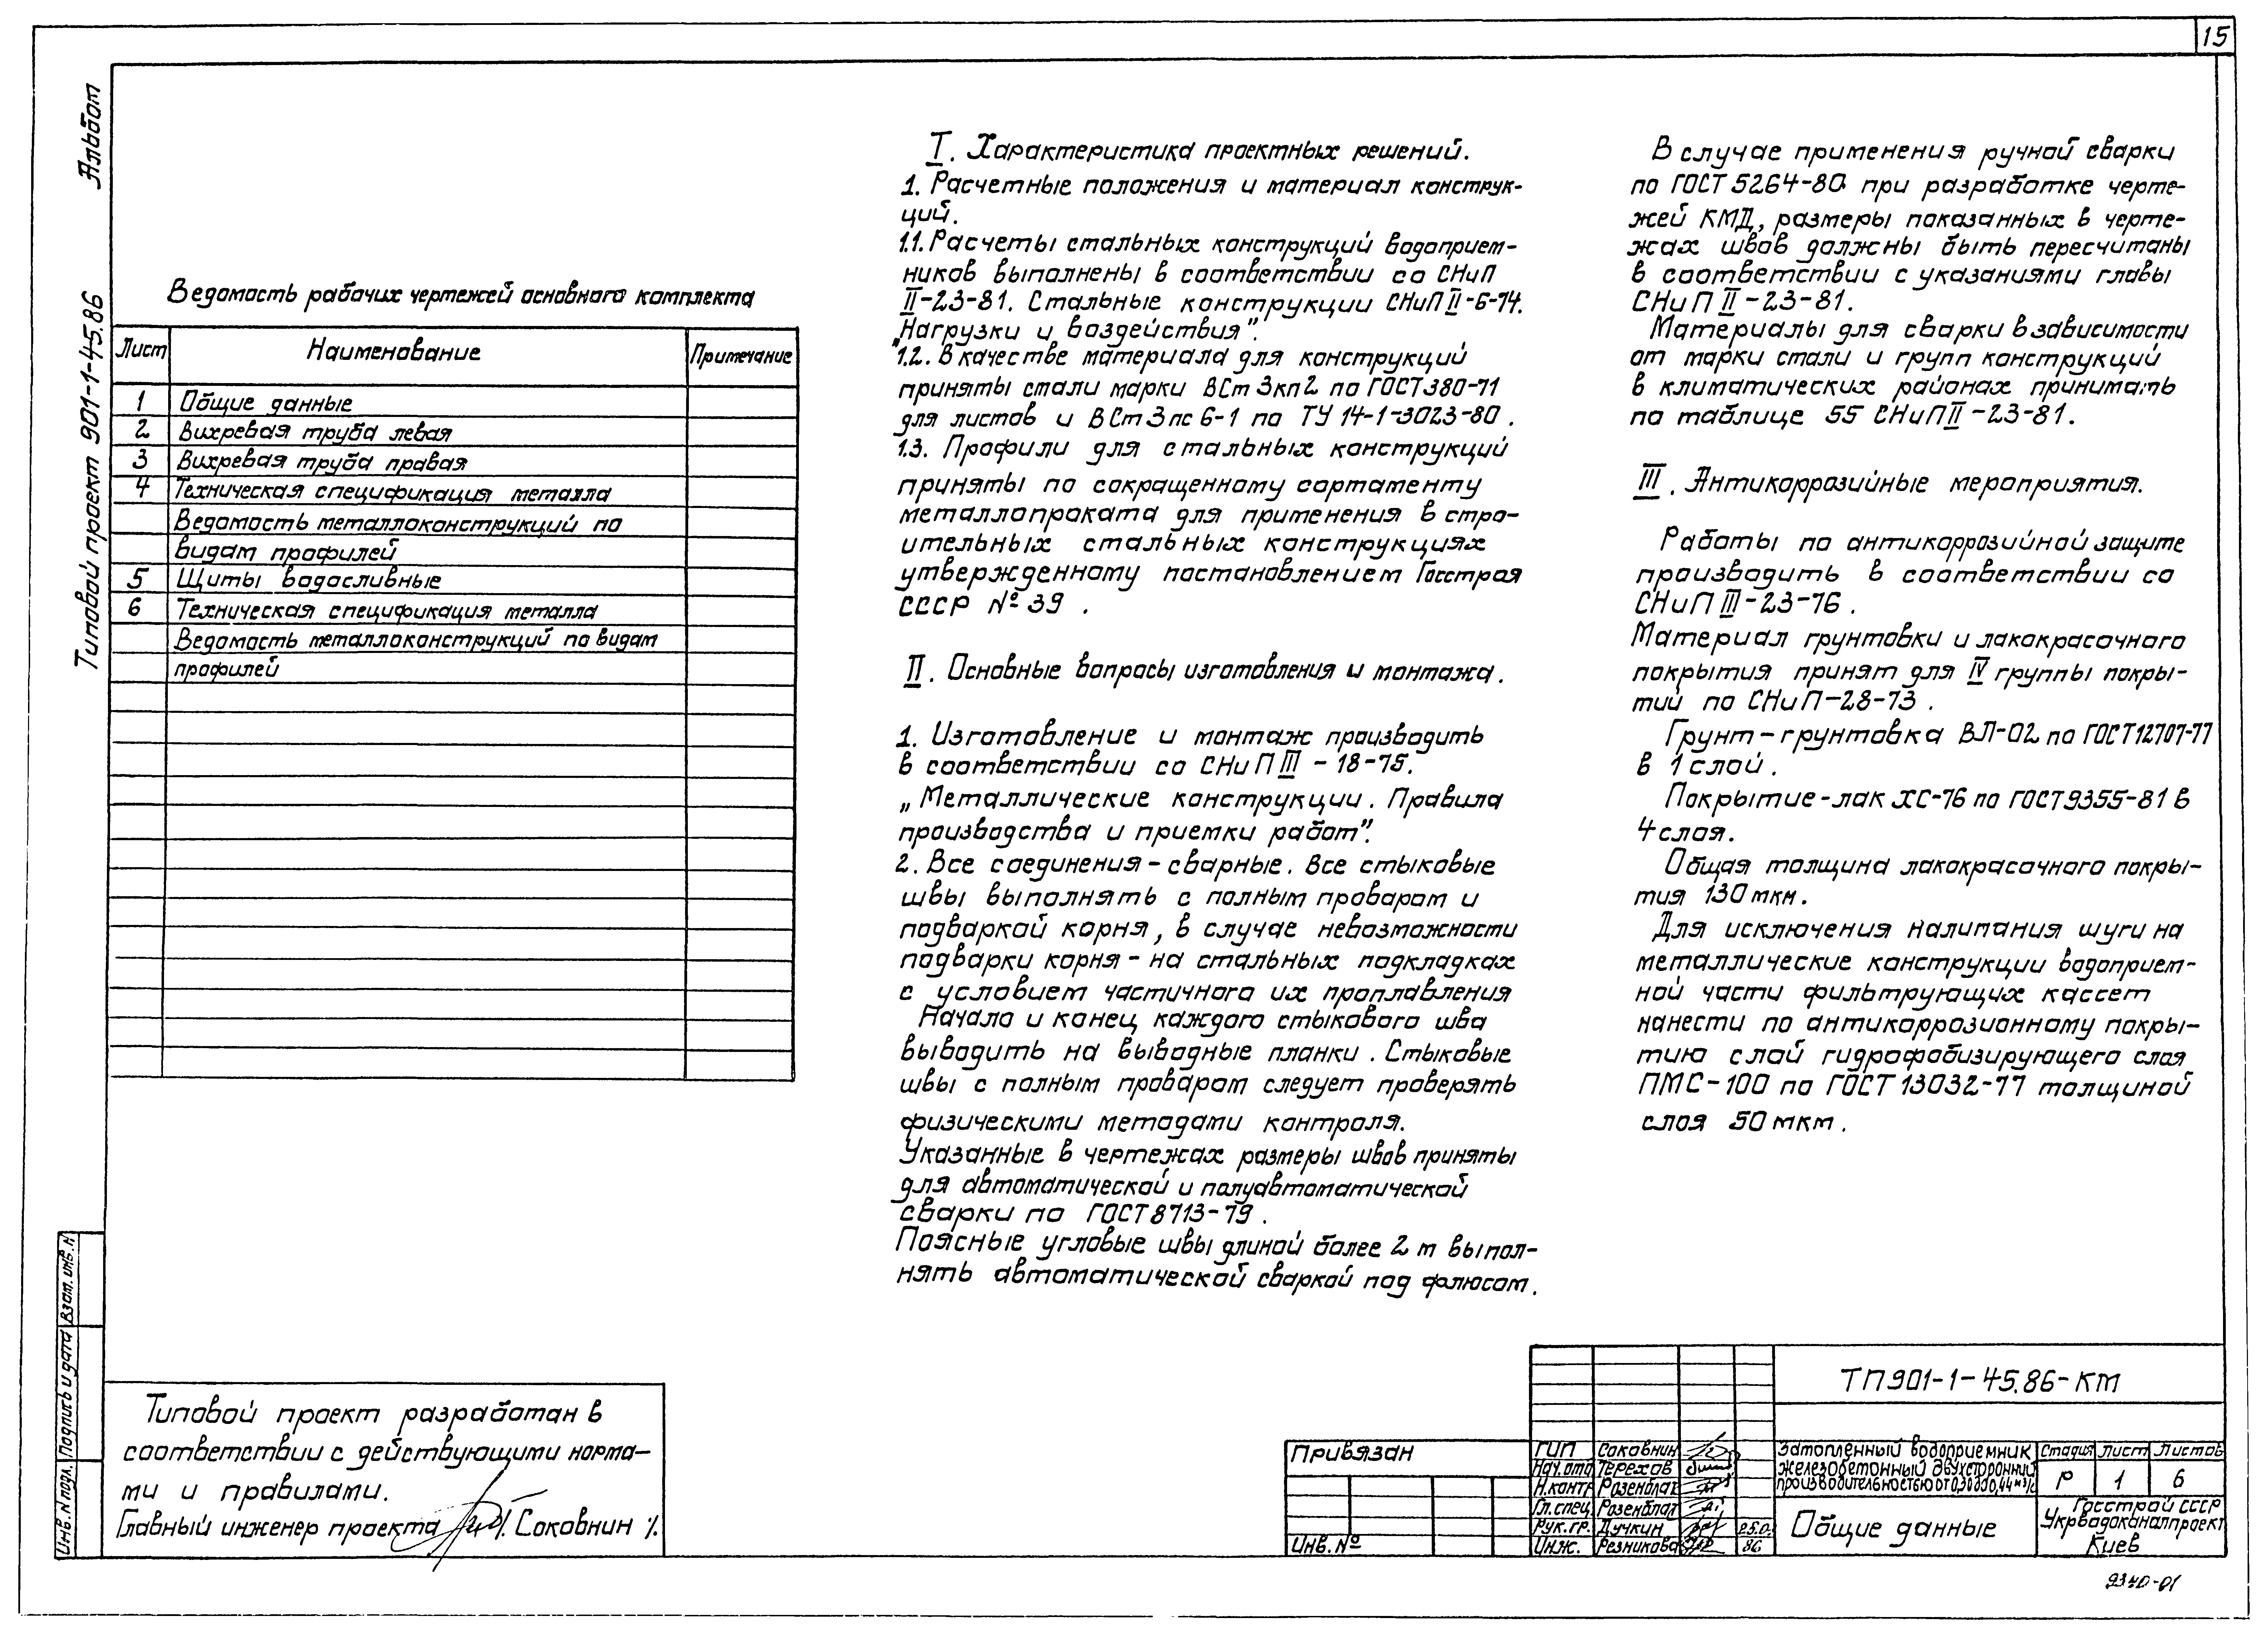 15
Альбом
Типовой проект 901-1-45.86
Ведомость рабочих чертежей основного комплекта
Лист Наименование Примечание
1 Общие данные
2 Вихревая труба левая
3 Вихревая труба правая
4 Техническая спецификация металла
Ведомость металлоконструкций по
видам профилей
5 Щиты водосливные
6 Техническая спецификация металла
Ведомость металлоконструкций по видам
профилей
I. Характеристика проектных решений.
1. Расчетные положения и материал конструк-
ций.
1.1. Расчеты стальных конструкций водоприем-
ников выполнены в соответствии со СНиП
II-23-81. Стальные конструкции СНиП II-6-74.
„Нагрузки и воздействия".
1.2. В качестве материала для конструкций
приняты стали марки ВСт3кп2 по ГОСТ 380-71
для листов и ВСт3пс6-1 по ТУ 14-1-3023-80.
1.3. Профили для стальных конструкций
приняты по сокращенному сортаменту
металлопроката для применения в стро-
ительных стальных конструкциях
утвержденному постановлением Госстроя
СССР №39.
II. Основные вопросы изготовления и монтажа.
1. Изготовление и монтаж производить
в соответствии со СНиП III-18-75.
„Металлические конструкции. Правила
производства и приемки работ".
2. Все соединения-сварные. Все стыковые
швы выполнять с полным проваром и
подваркой корня, в случае невозможности
подварки корня-на стальных подкладках
с условием частичного их проплавления
Начало и конец каждого стыкового шва
выводить на выводные планки. Стыковые
швы с полным проваром следует проверять
физическими методами контроля.
Указанные в чертежах размеры швов приняты
для автоматической и полуавтоматической
сварки по ГОСТ 8713-79.
Поясные угловые швы длиной более 2 м выпол-
нять автоматической сваркой под флюсом.
В случае применения ручной сварки
по ГОСТ 5264-80 при разработке черте-
жей КМД, размеры показанных в черте-
жах швов должны быть пересчитаны
в соответствии с указаниями главы
СНиП II-23-81.
Материалы для сварки в зависимости
от марки стали и групп конструкций
в климатических районах принимать
по таблице 55 СНиП II-23-81.
III. Антикоррозийные мероприятия.
Работы по антикоррозийной защите
производить в соответствии со
СНиП III-23-76.
Материал грунтовки и лакокрасочного
покрытия принят для IV группы покры-
тий по СНиП-28-73.
Грунт-грунтовка ВЛ-02 по ГОСТ 12707-77
в 1 слой.
Покрытие-лак ХС-76 по ГОСТ 9355-81 в
4 слоя.
Общая толщина лакокрасочного покры-
тия 130 мкм.
Для исключения налипания шуги на
металлические конструкции водоприем-
ной части фильтрующих кассет
нанести по антикоррозионному покры-
тию слой гидрофобизирующего слоя
ПМС-100 по ГОСТ 13032-77 толщиной
слоя 50 мкм.
Взам. инв. N
Подпись и дата
Инв. N подл.
Типовой проект разработан в
соответствии с действующими норма-
ми и правилами.
Главный инженер проекта Соковнин
Привязан
Инв. №
ГИП Соковнин
Нач. отд Терехов
Н.контр Розенблат
Гл.спец. Розенблат
Рук.гр. Дучкин
Инж. Резникова 86
ТП901-1-45.86-КМ
Затопленный водоприемник
железобетонный двухсторонний
производительностью от 0,30 до 0,44 м3/с
Стадия Лист Листов
Р 1 6
Общие данные
Госстрой СССР
Укрводоканалпроект
Киев
9340-01